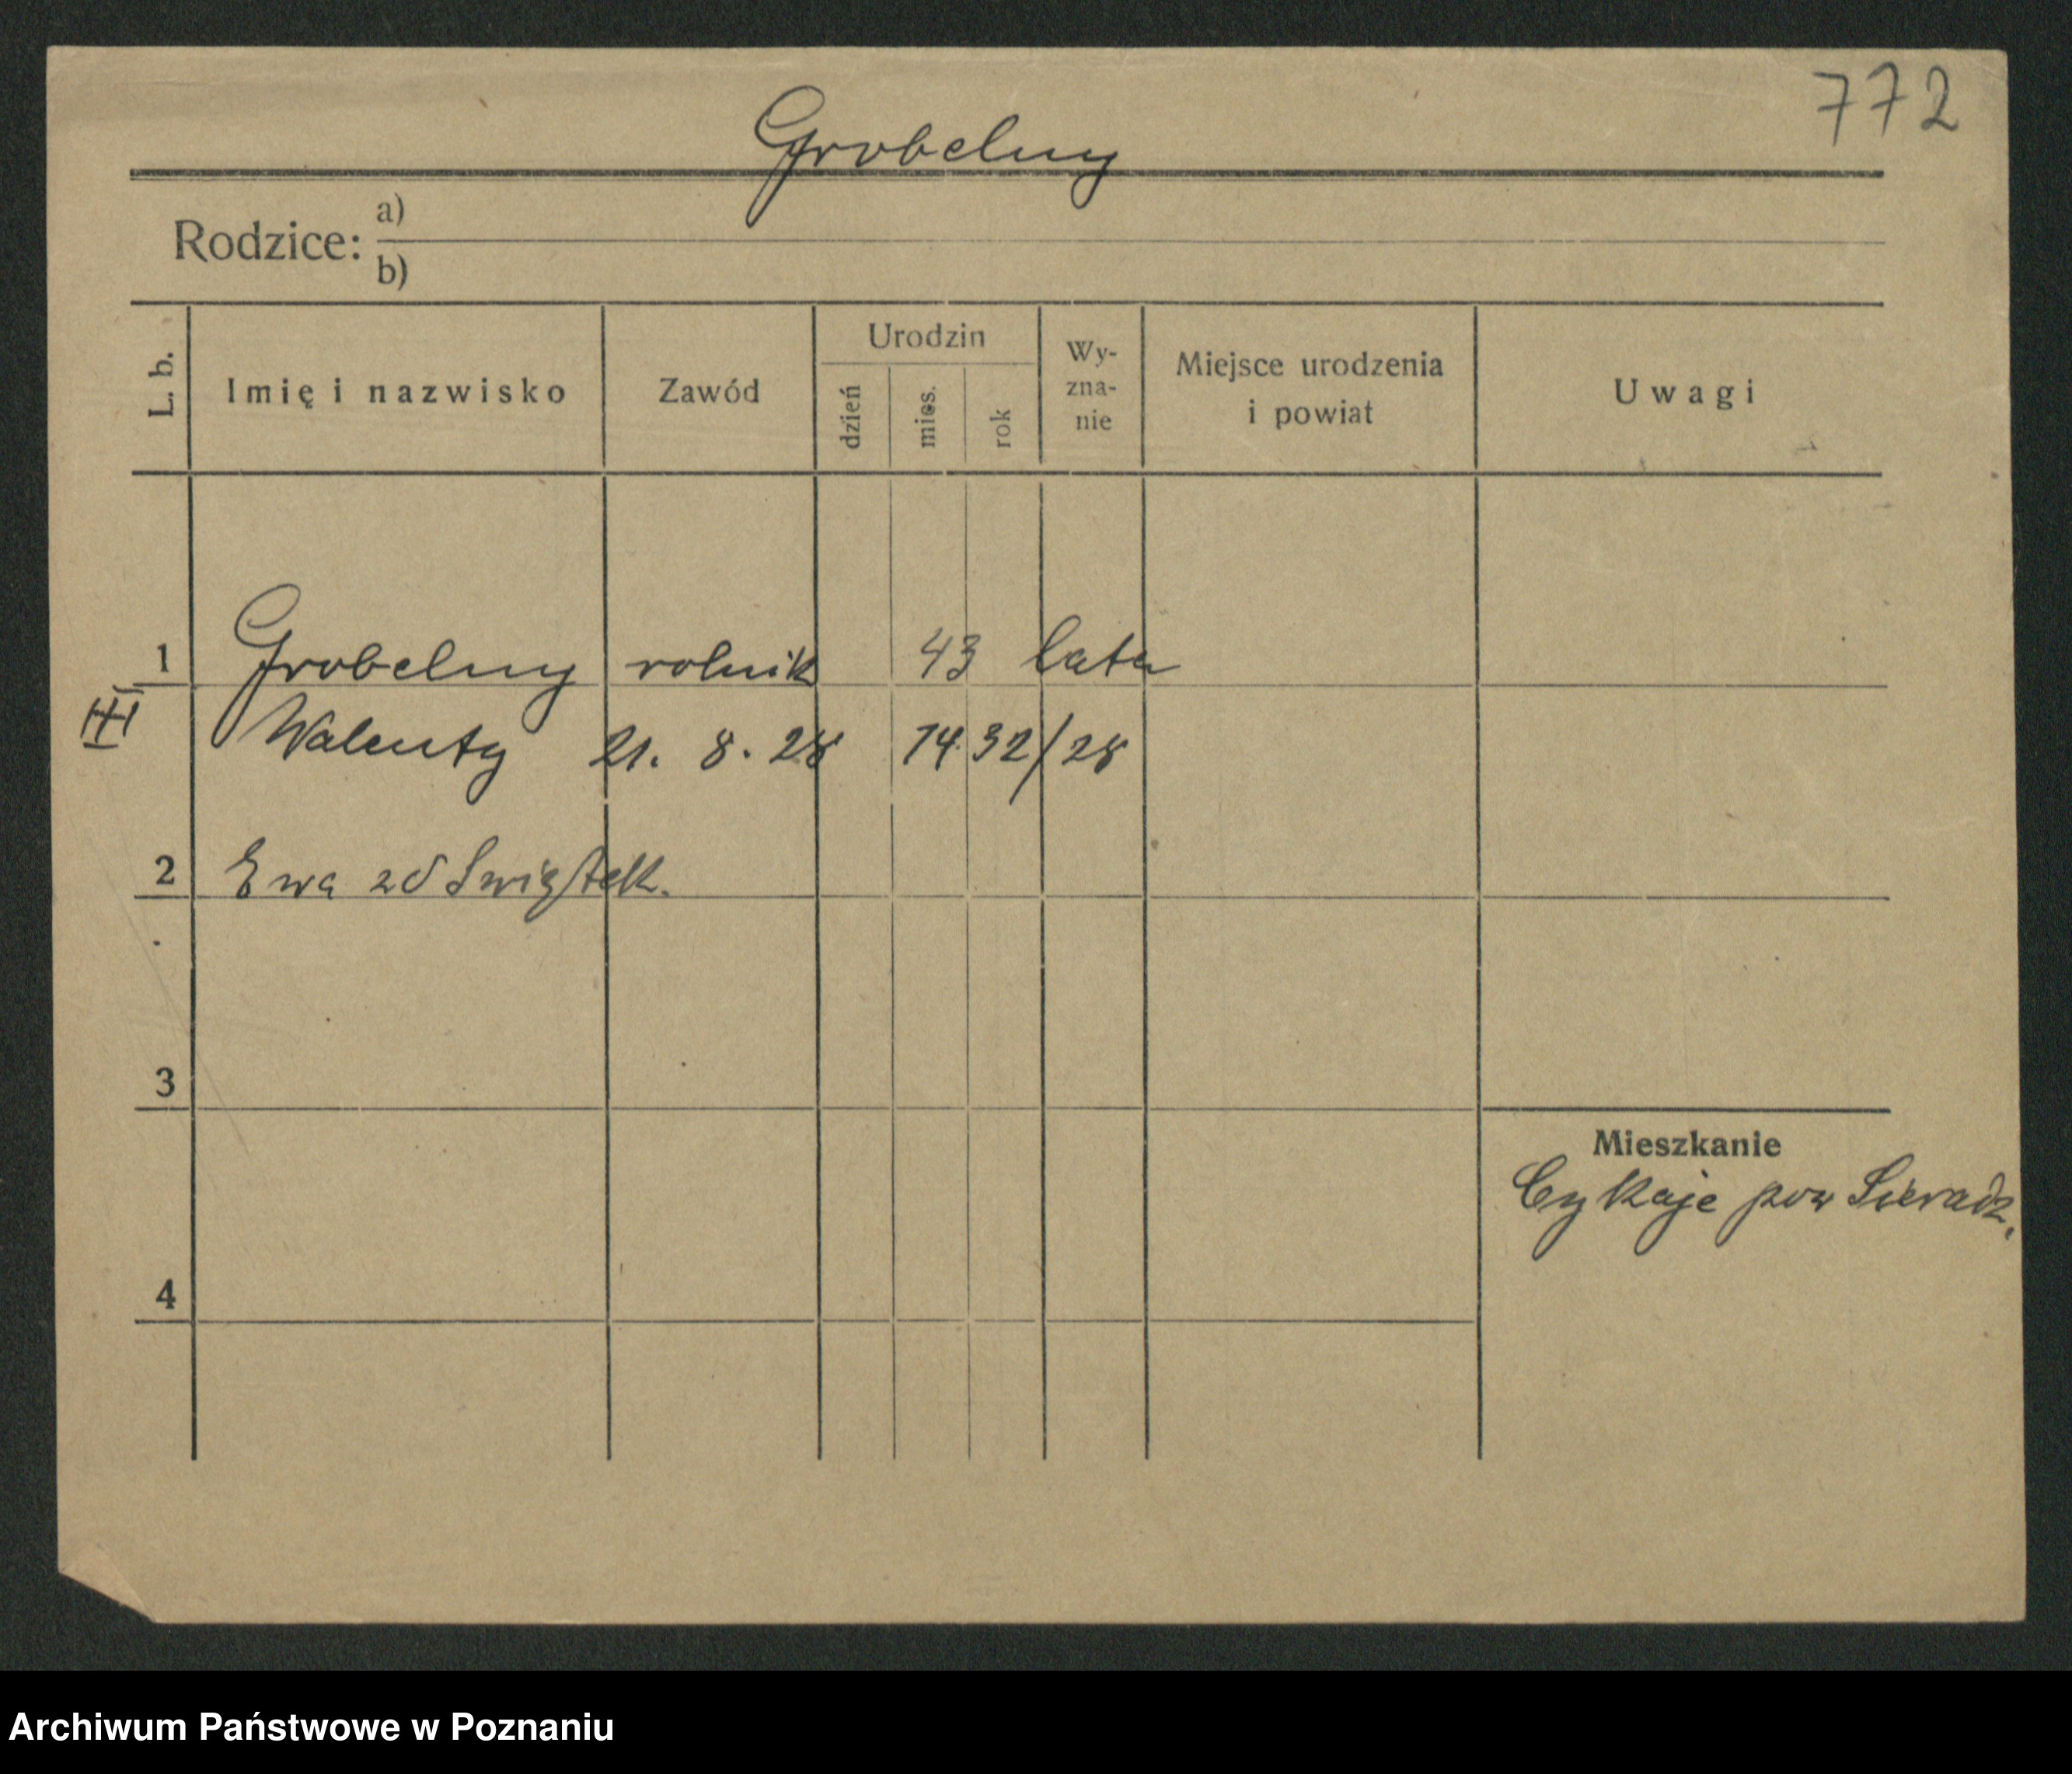 772
Grobelny
Rodzice: a)
b)
L. b.
Imię i nazwisko
Zawód
Urodzin
dzień
mies.
rok
Wy-
zna-
nie
Miejsce urodzenia
i powiat
Uwagi
1 Grobelny rolnik 43 lata
III Walenty 21. 8. 28 1432/28
2 Ewa zd Swiątek.
3
Mieszkanie
Cykaje pow Sieradz.
4
Archiwum Państwowe w Poznaniu